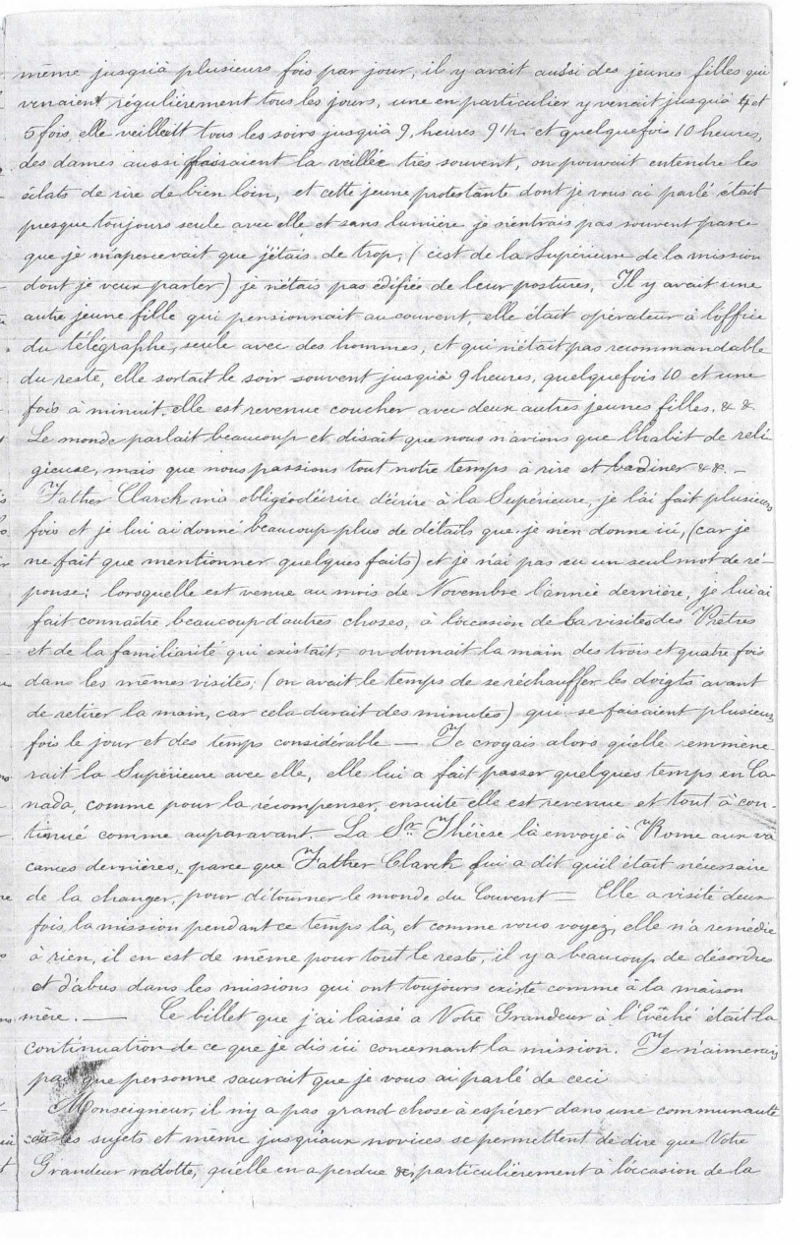 même jusqu'à plusieurs fois par jour, il y avait aussi des jeunes filles qui
venaient régulièrement tous les jours, une en particulier y venait jusqu'à 4 et
5 fois, elle veillait tous les soirs jusqu'à 9, heures 9½ et quelquefois 10 heures,
des dames aussi faisaient la veillée très souvent, on pouvait entendre les
éclats de rire de bien loin, et cette jeune protestante dont je vous ai parlé était
presque toujours seule avec elle et sans lumière, je n'entrais pas souvent parce
que je m'apercevait que j'étais de trop, (c'est de la Supérieure de la mission
dont je veux parler) je n'étais pas édifiée de leur postures, Il y avait une
autre jeune fille qui pensionnait au couvent, elle était opérateur à l'office
du télégraphe, seule avec des hommes, et qui n'était pas recommandable
du reste, elle sortait le soir souvent jusqu'à 9 heures, quelquefois 10 et une
fois à minuit, elle est revenue coucher avec deux autres jeunes filles, & &.
Le monde parlait beaucoup et disait que nous n'avions que l'habit de reli-
gieuse, mais que nous passions tout notre temps à rire et badiner &&. –
Father Clarck m'a obligée d'écrire d'écrire à la Supérieure, je l'ai fait plusieurs
fois et je lui ai donné beaucoup plus de détails que je n'en donne ici, (car je
ne fait que mentionner quelques faits) et je n'ai pas eu un seul mot de ré-
ponse; lorsqu'elle est venue au mois de Novembre l'année dernière, je lui ai
fait connaître beaucoup d'autres choses, à l'occasion de la visites des Prêtres
et de la familiarité qui existait, – on donnait la main des trois et quatre fois
dans les mêmes visites, (on avait le temps de se réchauffer les doigts avant
de retirer la main, car cela durait des minutes) qui se faisaient plusieurs
fois le jour et des temps considérable — Je croyais alors qu'elle emmène-
rait la Supérieure avec elle, elle lui a fait passer quelques temps en Ca-
nada, comme pour la récompenser, ensuite elle est revenue et tout à con-
tinué comme auparavant. — La Sr. Thérèse l'à envoyé à Rome aux va
cances dernières, parce que Father Clarck lui a dit qu'il était nécessaire
de la changer, pour détourner le monde du Couvent — Elle a visité deux
fois la mission pendant ce temps là, et comme vous voyez, elle n'a remédié
à rien, il en est de même pour tout le reste, il y a beaucoup de désordres
et d'abus dans les missions qui ont toujours existé comme à la maison
mère. — Le billet que j'ai laissé a Votre Grandeur à l'Evêché était la
continuation de ce que je dis ici concernant la mission. Je n'aimerais
pas que personne saurait que je vous ai parlé de ceci
Monseigneur, il n'y a pas grand chose à espérer dans une communauté
où les sujets et même jusqu'aux novices se permettent de dire que Votre
Grandeur radotte, qu'elle en a perdue &, particulièrement à l'occasion de la